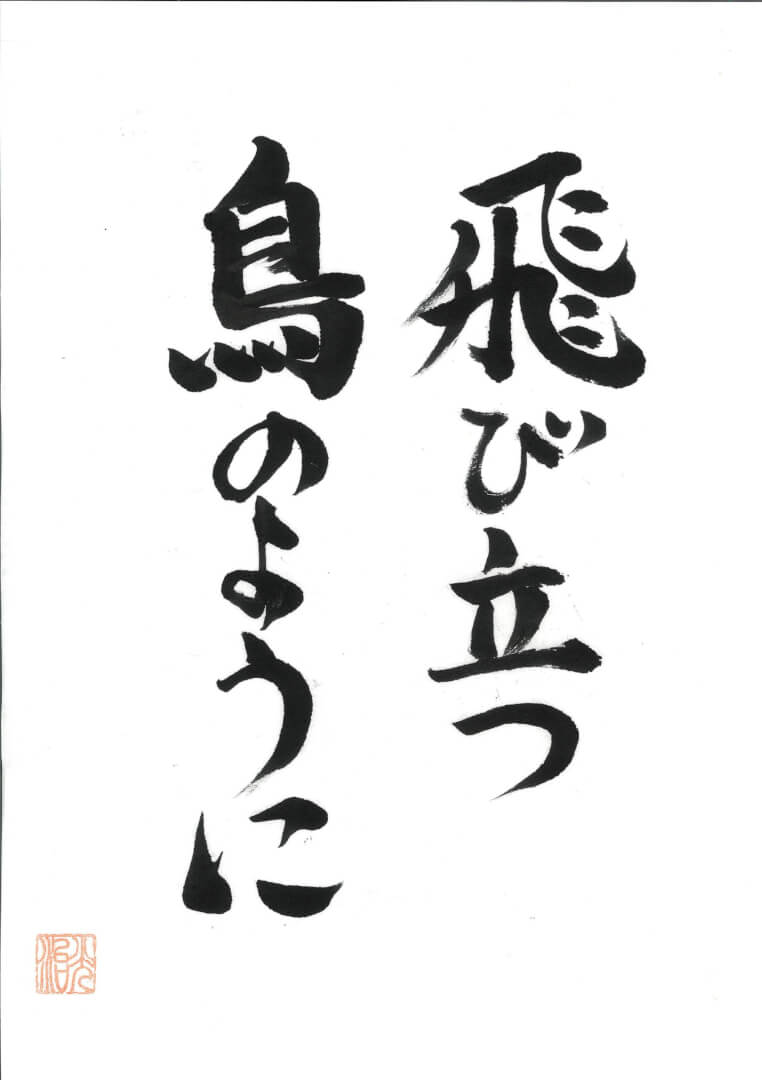 飛び立つ
鳥のように